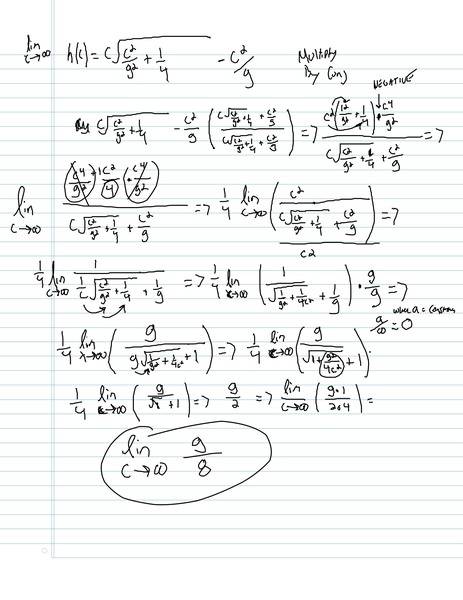 lim c→∞ h(c) = c√(c²/g² + 1/4) - c²/g Multiply By Conj
NEGATIVE
c√(c²/g² + 1/4) - c²/g ( (c√(c²/g² + 1/4) + c²/g) / (c√(c²/g² + 1/4) + c²/g) ) => (c²(c²/g² + 1/4) - c⁴/g²) / (c√(c²/g² + 1/4) + c²/g) =>
lim c→∞ (c⁴/g² + 1c²/4 - c⁴/g²) / (c√(c²/g² + 1/4) + c²/g) => 1/4 lim c→∞ ( c² / (c√(c²/g² + 1/4) + c²/g) ) / c² =>
1/4 lim c→∞ 1 / (1/c √(c²/g² + 1/4) + 1/g) => 1/4 lim c→∞ ( 1 / (√(1/g² + 1/4c²) + 1/g) ) · g/g =>
where a = constant
a/∞ = 0
1/4 lim c→∞ ( g / (g√(1/g² + 1/4c²) + 1) ) => 1/4 lim c→∞ ( g / (√(1 + g²/4c²) + 1) )
1/4 lim c→∞ ( g / (√1 + 1) ) => g/2 => lim c→∞ ( g·1 / 2·4 ) =
lim c→∞ g/8